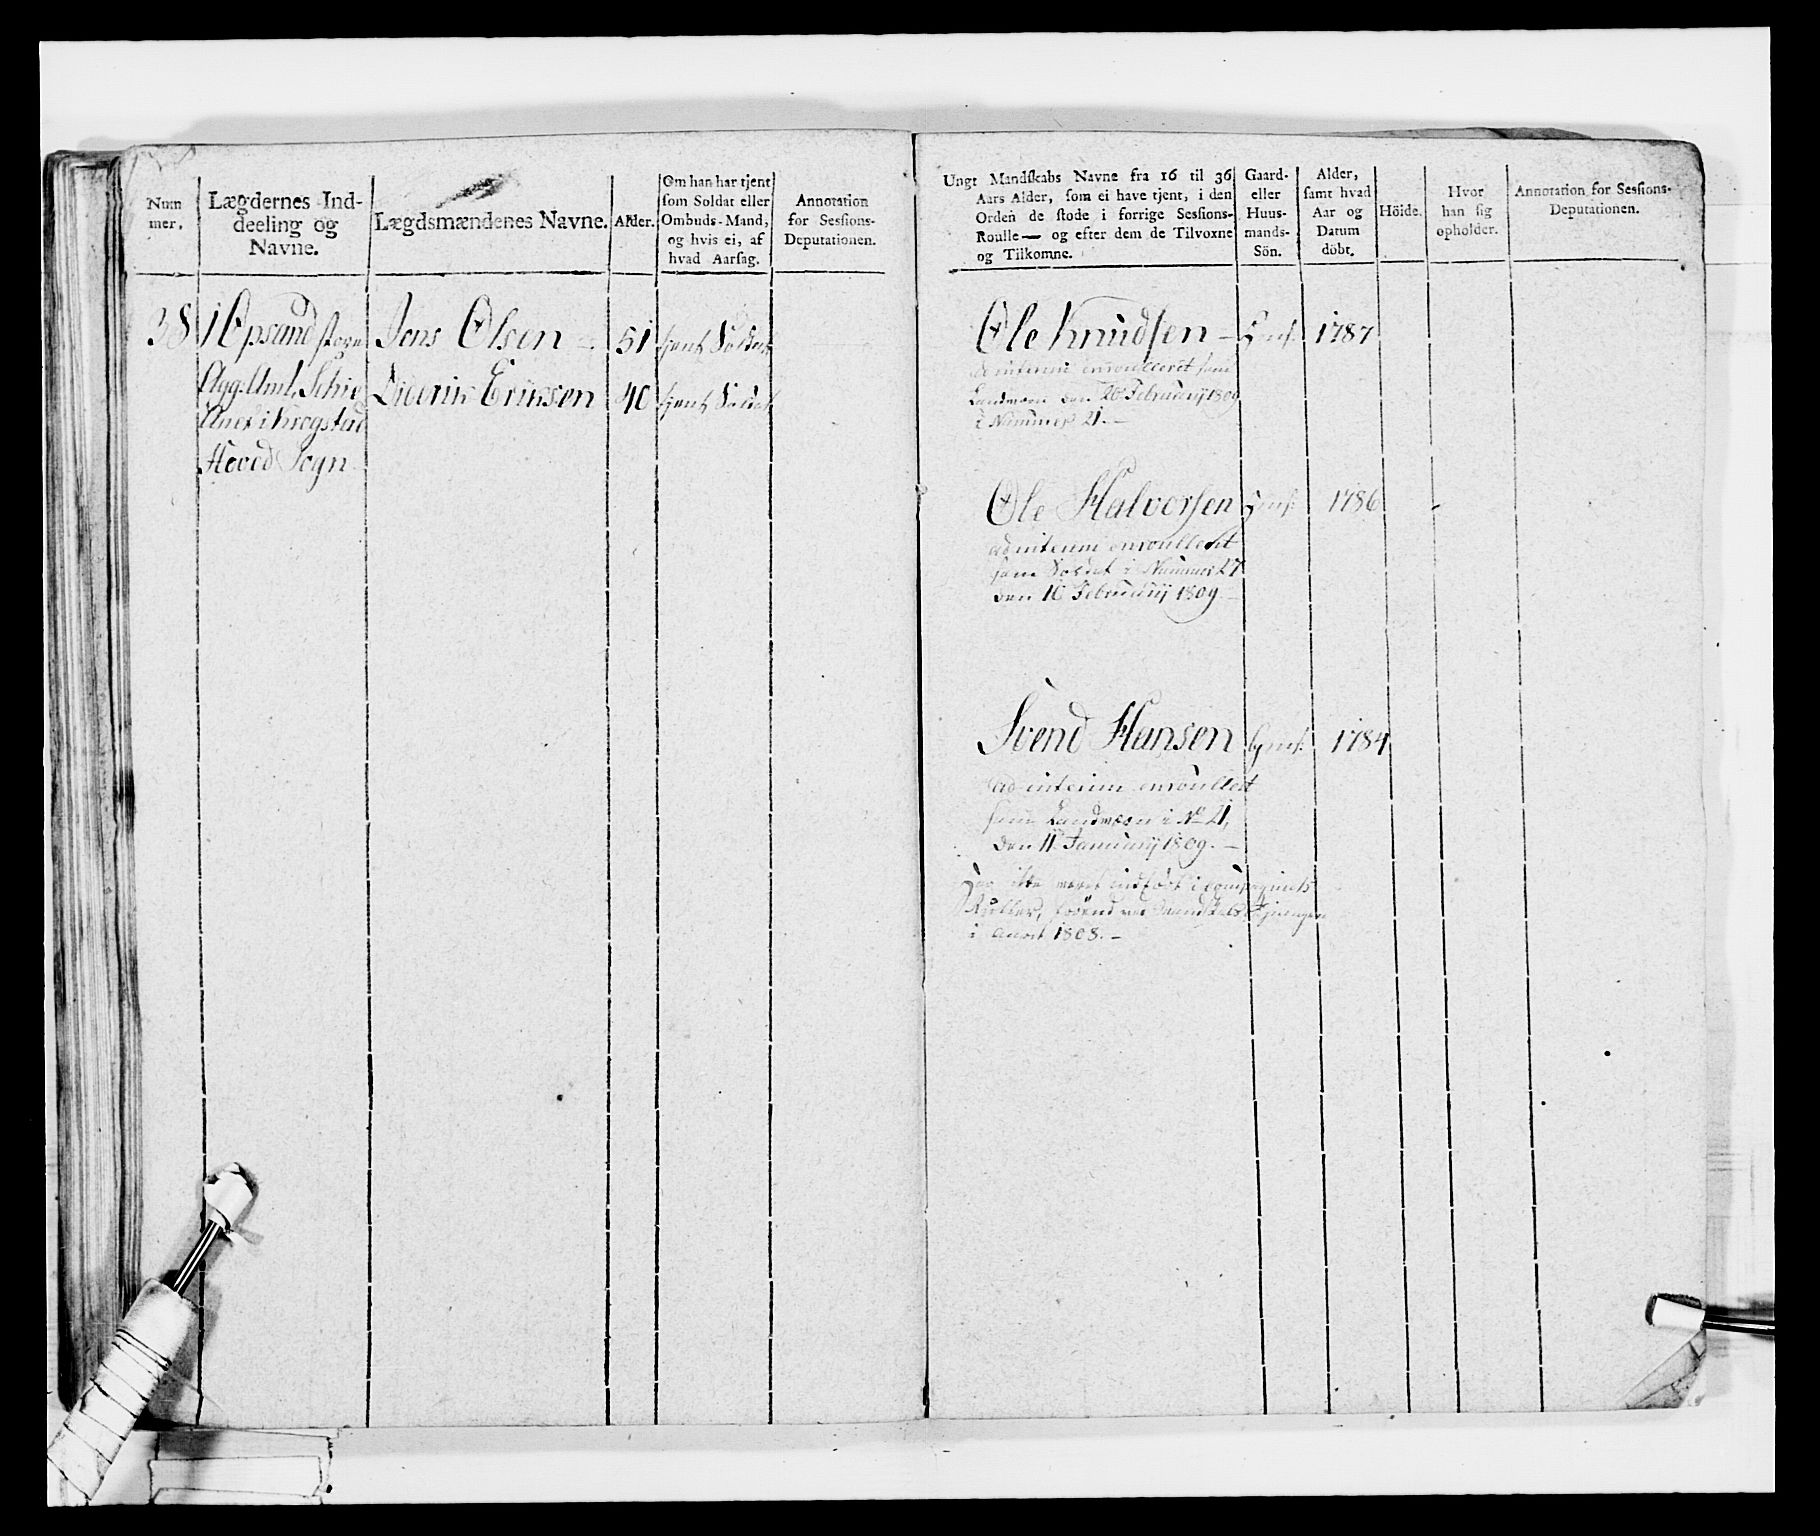 Num
mer.
Lægdernes Ind-
deeling og
Navne.
Lægdsmændenes Navne.
Alder.
Om han har tjent
som Soldat eller
Ombuds-Mand,
og hvis ei, af
hvad Aarsag.
Annotation
for Sessions-
Deputationen.
38
1 Opsand store
Agg: Aml, Schie
Anex i Krogstad
Hoved Sogn
Jens Olsen
51
tient Soldat
Diderik Eriksen
40
tient Soldat
Ungt Mandskabs Navne fra 16 til 36
Aars Alder, som ei have tjent, i den
Orden de stode i forrige Sessions-
Roulle — og efter dem de Tilvoxne
og Tilkomne.
Gaard-
eller
Huus-
mands-
Sön.
Alder,
samt hvad
Aar og
Datum
döbt.
Höide.
Hvor
han sig
opholder.
Annotation for Sessions-
Deputationen.
Ole Knudsen —
1787
ad interim enroulleret som
Landværn den 26 Februarij 1809
i Nummer 21. —
Ole Halvorsen
1786
ad interim enroulleret
som Soldat i Nummer 27
den 10 Februarij 1809 —
Svend Hansen
1784
ad interim enroulleret
som Landværn i No 21,
den 11 Januarij 1809. —
ikke været indført i Compagniets
Ruller, förend ved
i Aaret 1808. —